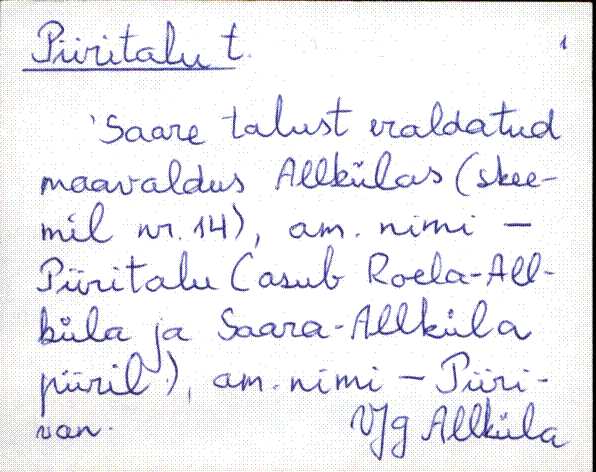 Piiritalu t. 1
'Saare talust eraldatud
maavaldus Allkülas (skee-
mil nr. 14), am. nimi –
Piiritalu (asub Roela-All-
küla ja Saara-Allküla
piiril), am. nimi – Piiri-
van.
VJg Allküla